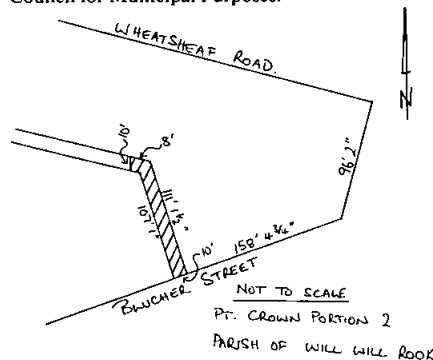 Council for Municipal Purposes.
WHEATSHEAF ROAD.
N
10'
8'
96' 2"
111' 1 1/2"
107' 1"
10'
158' 4 3/4"
BLUCHER STREET
NOT TO SCALE
PT. CROWN PORTION 2
PARISH OF WILL WILL ROOK